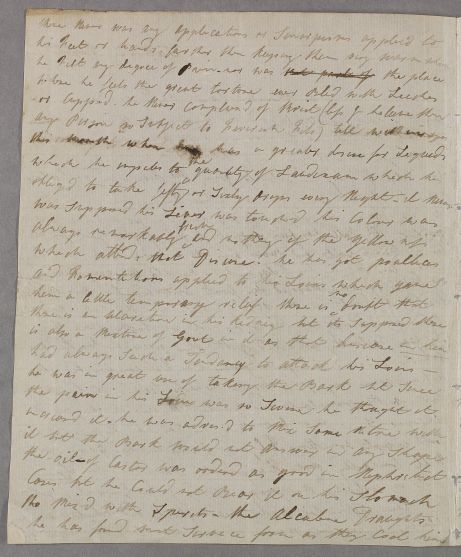 there never was any application or Sinapisms applied to
his Feet or hands. farther then keeping them very warm when
he felt any degree of Pain. nor was the place
where he feels the great torture ever bled with Leeches
or Cupped. he never complained of thirst (tho' I believe
any Person so Subject to feverish fits) till within
this month when has a greater desire for Liquids
which he imputes to the quantity of Laudanum which he is
oblig'd to take fifty or Sixty drops every Night. it never
was supposed his Liver was touch'd his Colour was
always remarkably fresh and nothing of the Yellow
which attd. that disease. he has got poultices
and Fomentations applied to his Loins which gave
him a little temporary relief. there is no doubt that
there is an Ulceration in his Kidney but it's supposed there
is also a Mixture of Gout in it as that disease in him
had always such a Tendency to attack his Loins
he was in great use of taking the Bark but since
the pain in his was so severe he thought it
increased it. he was advis'd to mix some Nitre with
it but the Bark would not answer in any Shape
the oil of Castor was order'd as good in Nephritick
Cases but he could not bear it on his Stomach
tho mix'd with Spirits. the Alcaline Draughts
he has found most Service from as they Cool him